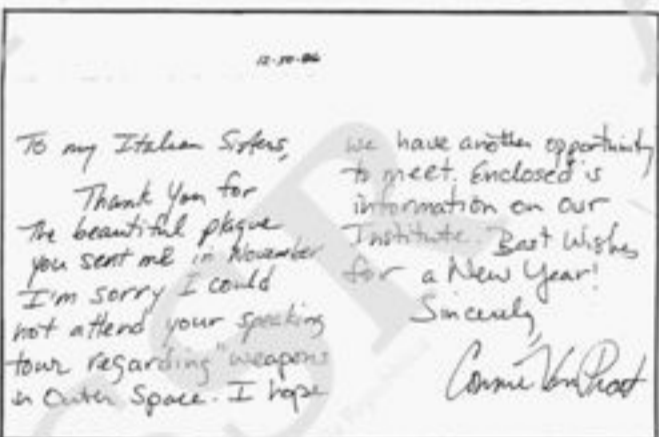 12-30-06
To my Italian Sisters,
Thank You for
the beautiful plaque
you sent me in November
I'm sorry I could
not attend your speaking
tour regarding "weapons
in Outer Space. I hope
we have another opportunity
to meet. Enclosed is
information on our
Institute. Best Wishes
for a New Year!
Sincerely,
Connie Van Praet